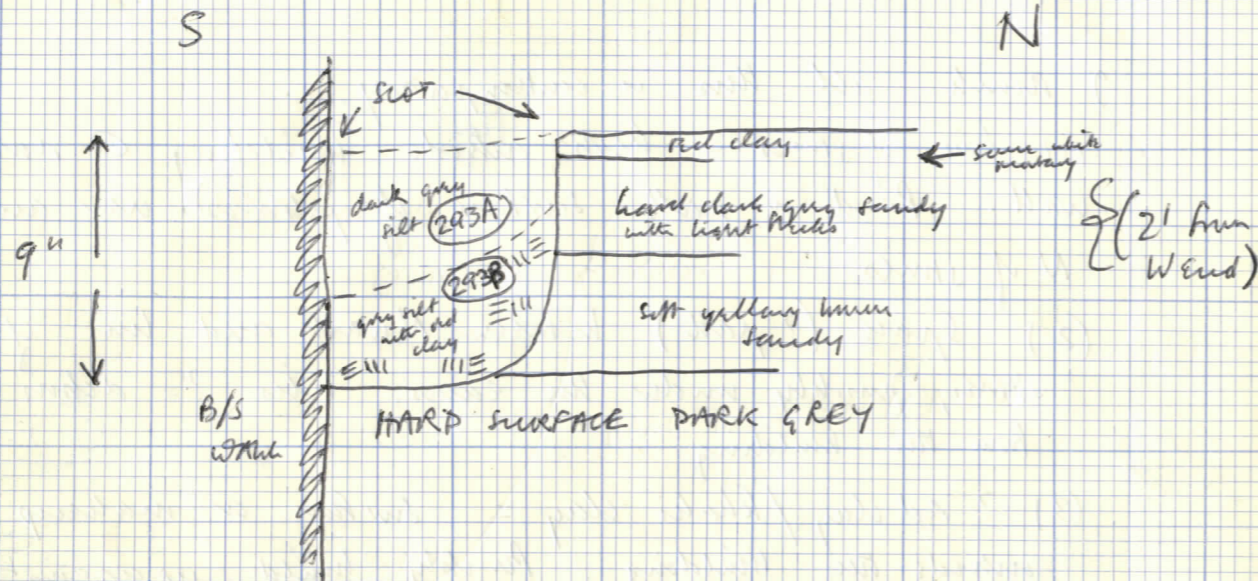 S
N
SLOT
red clay
some white
dark grey
silt 293A
hard dark grey sandy
with light flecks
(2' from
W End)
9"
293B
grey silt
with red
clay
soft yellowy brown
sandy
B/S
WALL
HARD SURFACE DARK GREY